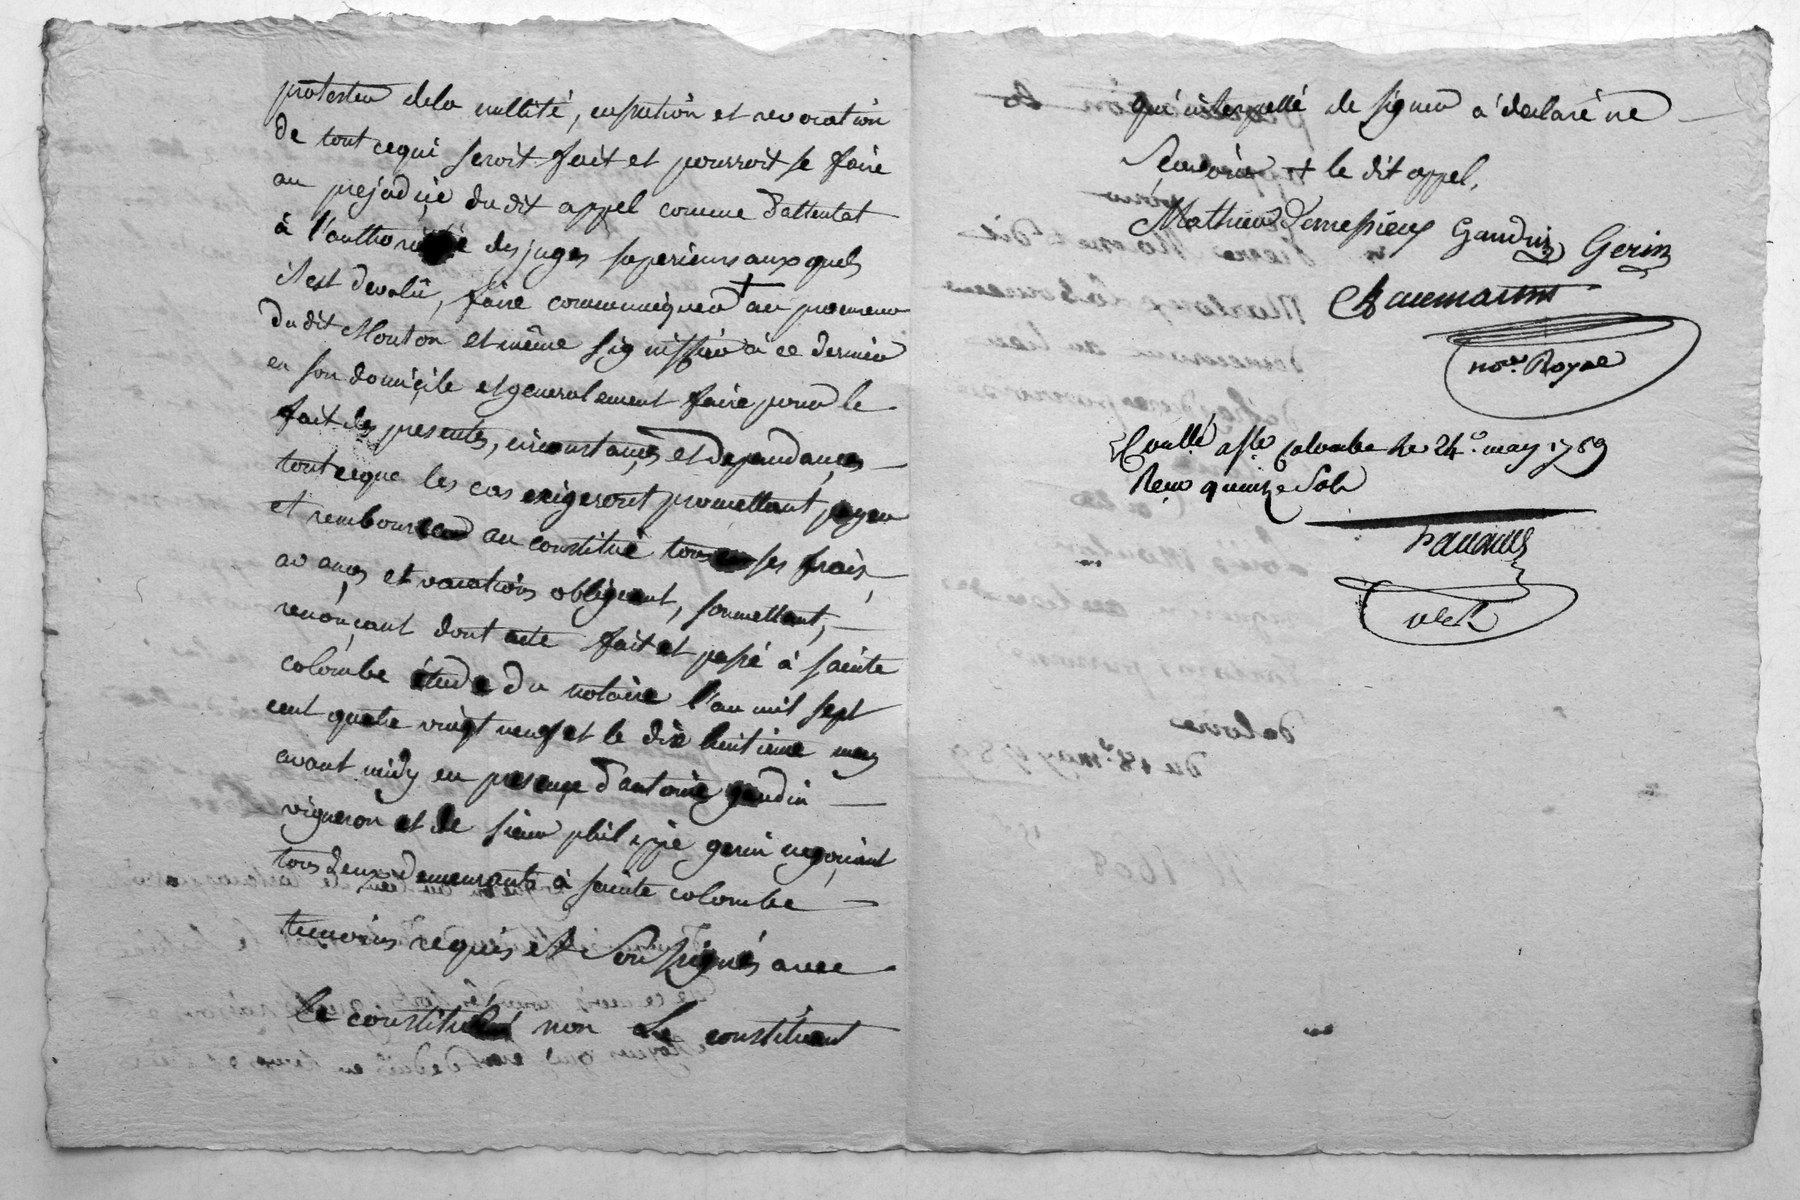 protester dela nullité, cassation et revocation
de tout cequi seroit fait et pourroit se faire
au prejudice du dit appel comme d'attentat
à l'authorité des juges superieurs auxquels
il est devolû, faire communiquer + au procureur
du dit Mouton et même signiffier à ce dernier
en son domicile et generalement faire pour le
fait des presentes, circonstances et dependances
tout ceque les cas exigeront promettant, payer
et rembourser au constitué tous ses frais,
avances et vacations obligeant, soumettant,
renonçant dont acte fait et passé à sainte
colombe étude du notaire l'an mil sept
cent quatre vingt neuf et le dix huitieme may
avant midy en presence d'antoine gaudin
vigneron et de sieur philippe gerin negociant
tous deux demeurants à sainte colombe
temoins requis et Soussignés avec
Le constitué non Le constituant
qui interpellé de signer a declaré ne
Scavoir + le dit appel.
Mathieu Gaudin Gerin
nore. Royal
Conllé a ste colombe le 24e. may 1789
Reçu quinze Sols